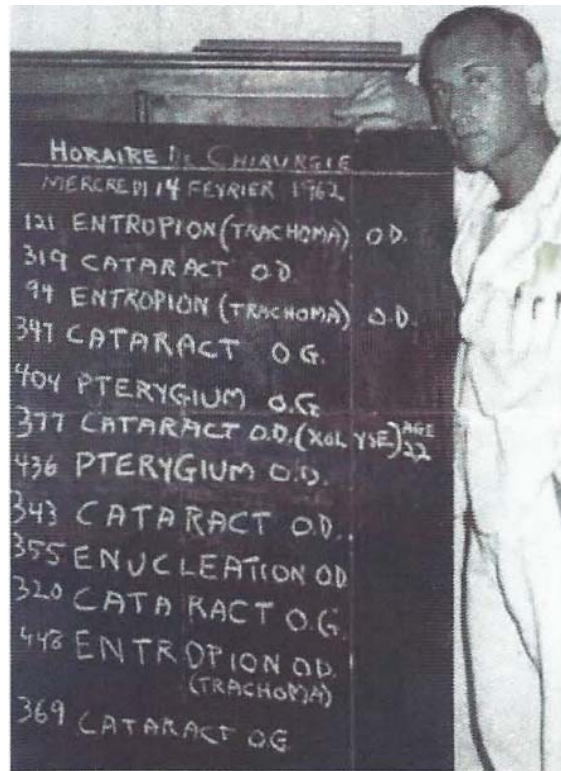 HORAIRE DE CHIRURGIE
MERCREDI 14 FEVRIER 1962
121 ENTROPION (TRACHOMA) O.D.
319 CATARACT O.D.
94 ENTROPION (TRACHOMA) O.D.
347 CATARACT O G.
404 PTERYGIUM O.G.
377 CATARACT O.D. (XOL YSE) AGE 22
436 PTERYGIUM O.D.
343 CATARACT O.D.
355 ENUCLEATION OD
320 CATARACT O.G.
448 ENTROPION O.D.
(TRACHOMA)
369 CATARACT OG